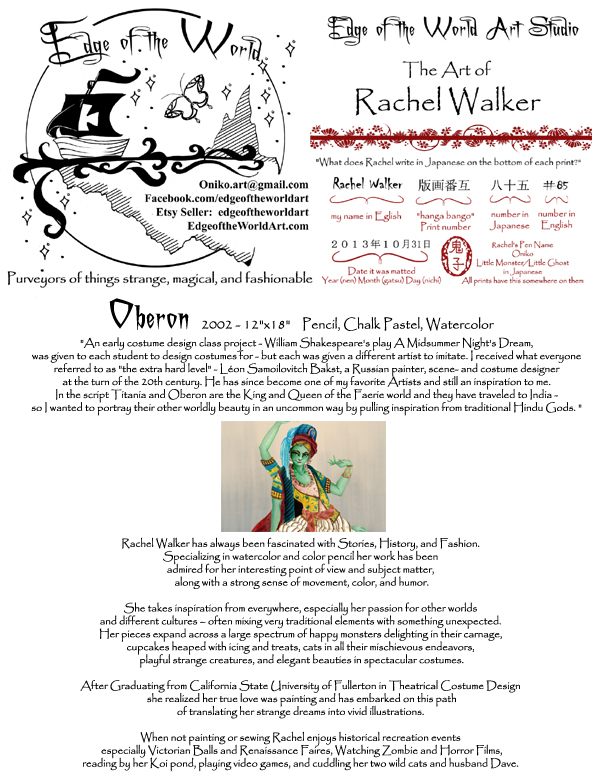 Edge of the World
Oniko.art@gmail.com
Facebook.com/edgeoftheworldart
Etsy Seller: edgeoftheworldart
EdgeoftheWorldArt.com
Purveyors of things strange, magical, and fashionable
Edge of the World Art Studio
The Art of
Rachel Walker
"What does Rachel write in Japanese on the bottom of each print?"
Rachel Walker 版画番互 八十五 #85
my name in Eglish
"hanga bango"
Print number
number in
Japanese
number in
English
2013年10月31日
Date it was matted
Year (nen) Month (gatsu) Day (nichi)
鬼子
Rachel's Pen Name
Oniko
Little Monster/Little Ghost
in Japanese
All prints have this somewhere on them
Oberon 2002 - 12"x18" Pencil, Chalk Pastel, Watercolor
"An early costume design class project - William Shakespeare's play A Midsummer Night's Dream,
was given to each student to design costumes for - but each was given a different artist to imitate. I received what everyone
referred to as "the extra hard level" - Léon Samoilovitch Bakst, a Russian painter, scene- and costume designer
at the turn of the 20th century. He has since become one of my favorite Artists and still an inspiration to me.
In the script Titania and Oberon are the King and Queen of the Faerie world and they have traveled to India -
so I wanted to portray their other worldly beauty in an uncommon way by pulling inspiration from traditional Hindu Gods. "
Rachel Walker has always been fascinated with Stories, History, and Fashion.
Specializing in watercolor and color pencil her work has been
admired for her interesting point of view and subject matter,
along with a strong sense of movement, color, and humor.
She takes inspiration from everywhere, especially her passion for other worlds
and different cultures – often mixing very traditional elements with something unexpected.
Her pieces expand across a large spectrum of happy monsters delighting in their carnage,
cupcakes heaped with icing and treats, cats in all their mischievous endeavors,
playful strange creatures, and elegant beauties in spectacular costumes.
After Graduating from California State University of Fullerton in Theatrical Costume Design
she realized her true love was painting and has embarked on this path
of translating her strange dreams into vivid illustrations.
When not painting or sewing Rachel enjoys historical recreation events
especially Victorian Balls and Renaissance Faires, Watching Zombie and Horror Films,
reading by her Koi pond, playing video games, and cuddling her two wild cats and husband Dave.